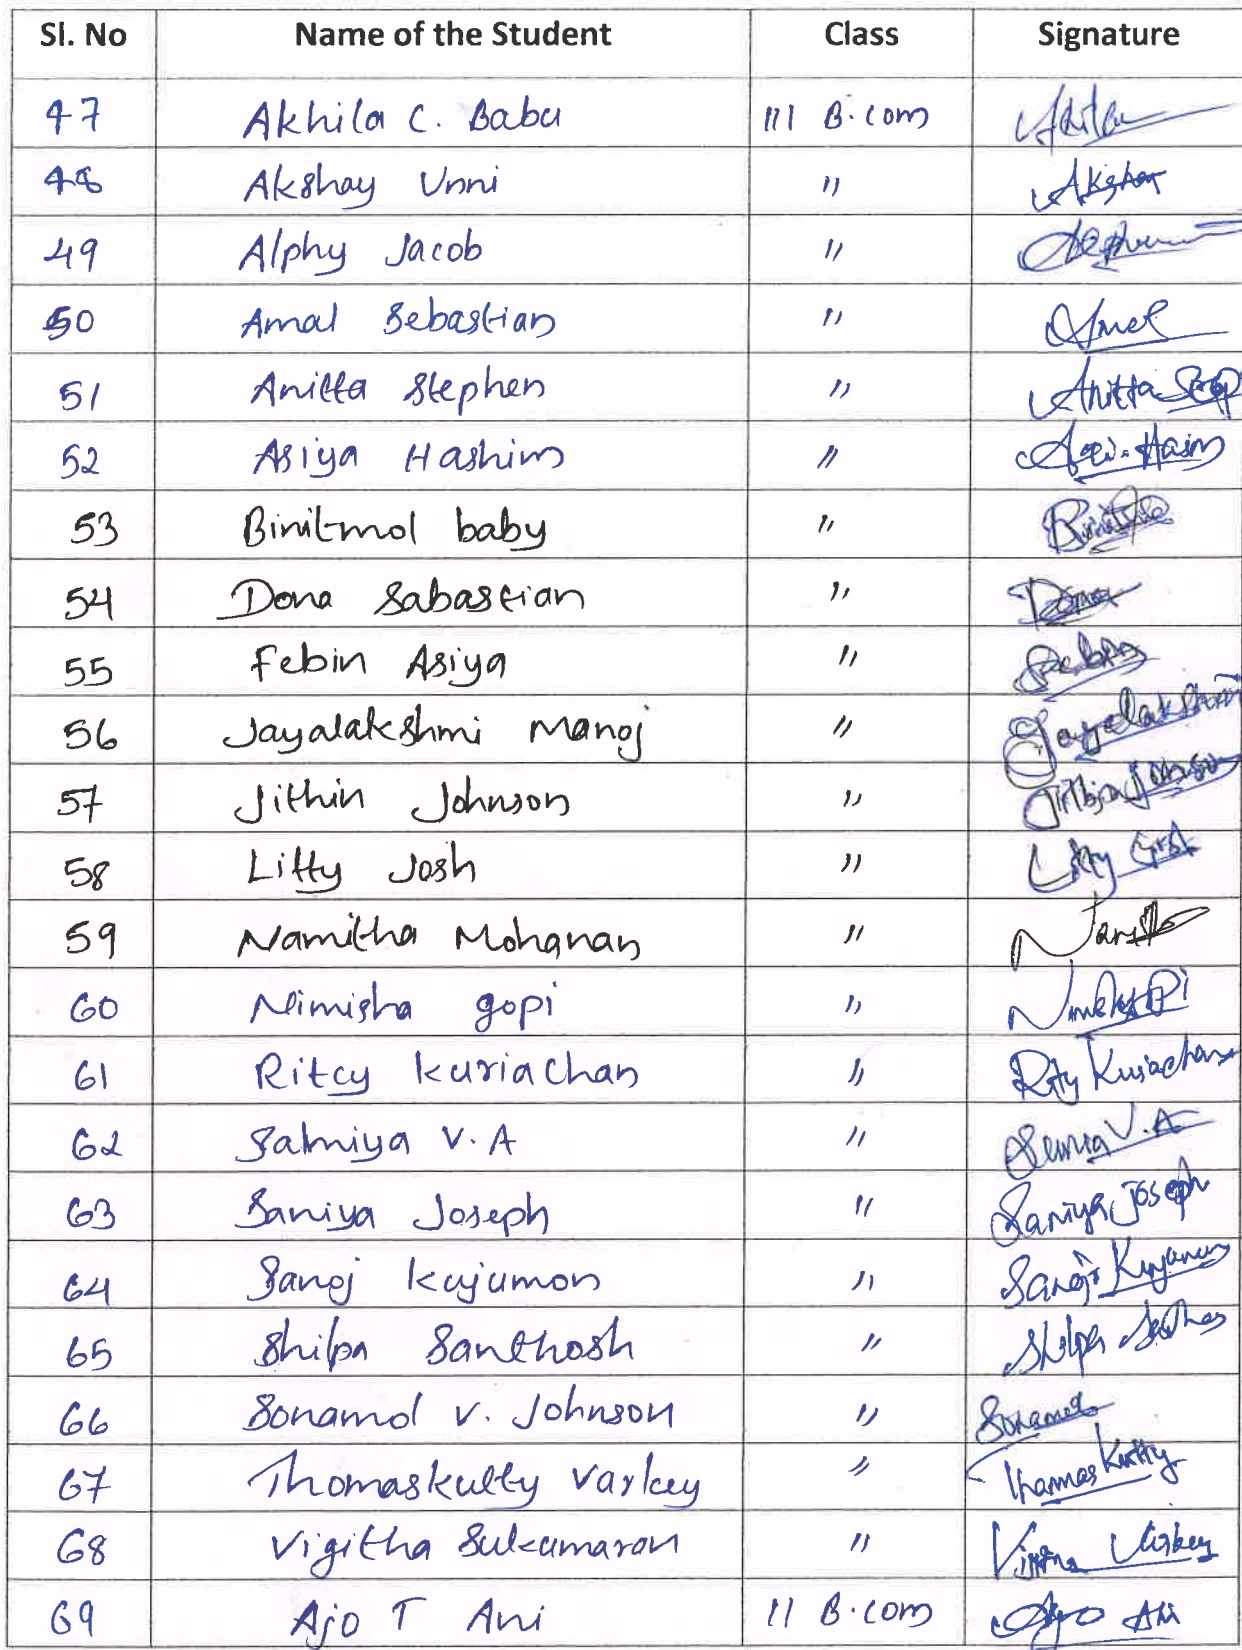 Sl. No Name of the Student Class Signature
47 Akhila C. Babu III B.com Akhila
48 Akshay Unni " Akshay
49 Alphy Jacob "
50 Amal Sebastian " Amal
51 Anitta Stephen " Anitta
52 Asiya Hashim "
53 Binitmol baby "
54 Dona Sabastian " Dona
55 Febin Asiya " Febin
56 Jayalakshmi Manoj " Jayalakshmi
57 Jithin Johnson " Jithin Johnson
58 Litty Josh " Litty
59 Namitha Mohanan "
60 Nimisha gopi "
61 Ritcy kuriachan " Kuriachan
62 Salmiya V. A " V. A
63 Saniya Joseph " Saniya Joseph
64 Sanoj kujumon " Sanoj
65 Shilpa Santhosh " Shilpa
66 Sonamol v. Johnson " Sonamol
67 Thomaskutty Varkey " Thomas Kutty
68 Vigitha Sukumaran "
69 Ajo T Ani II B.com Ajo Ani